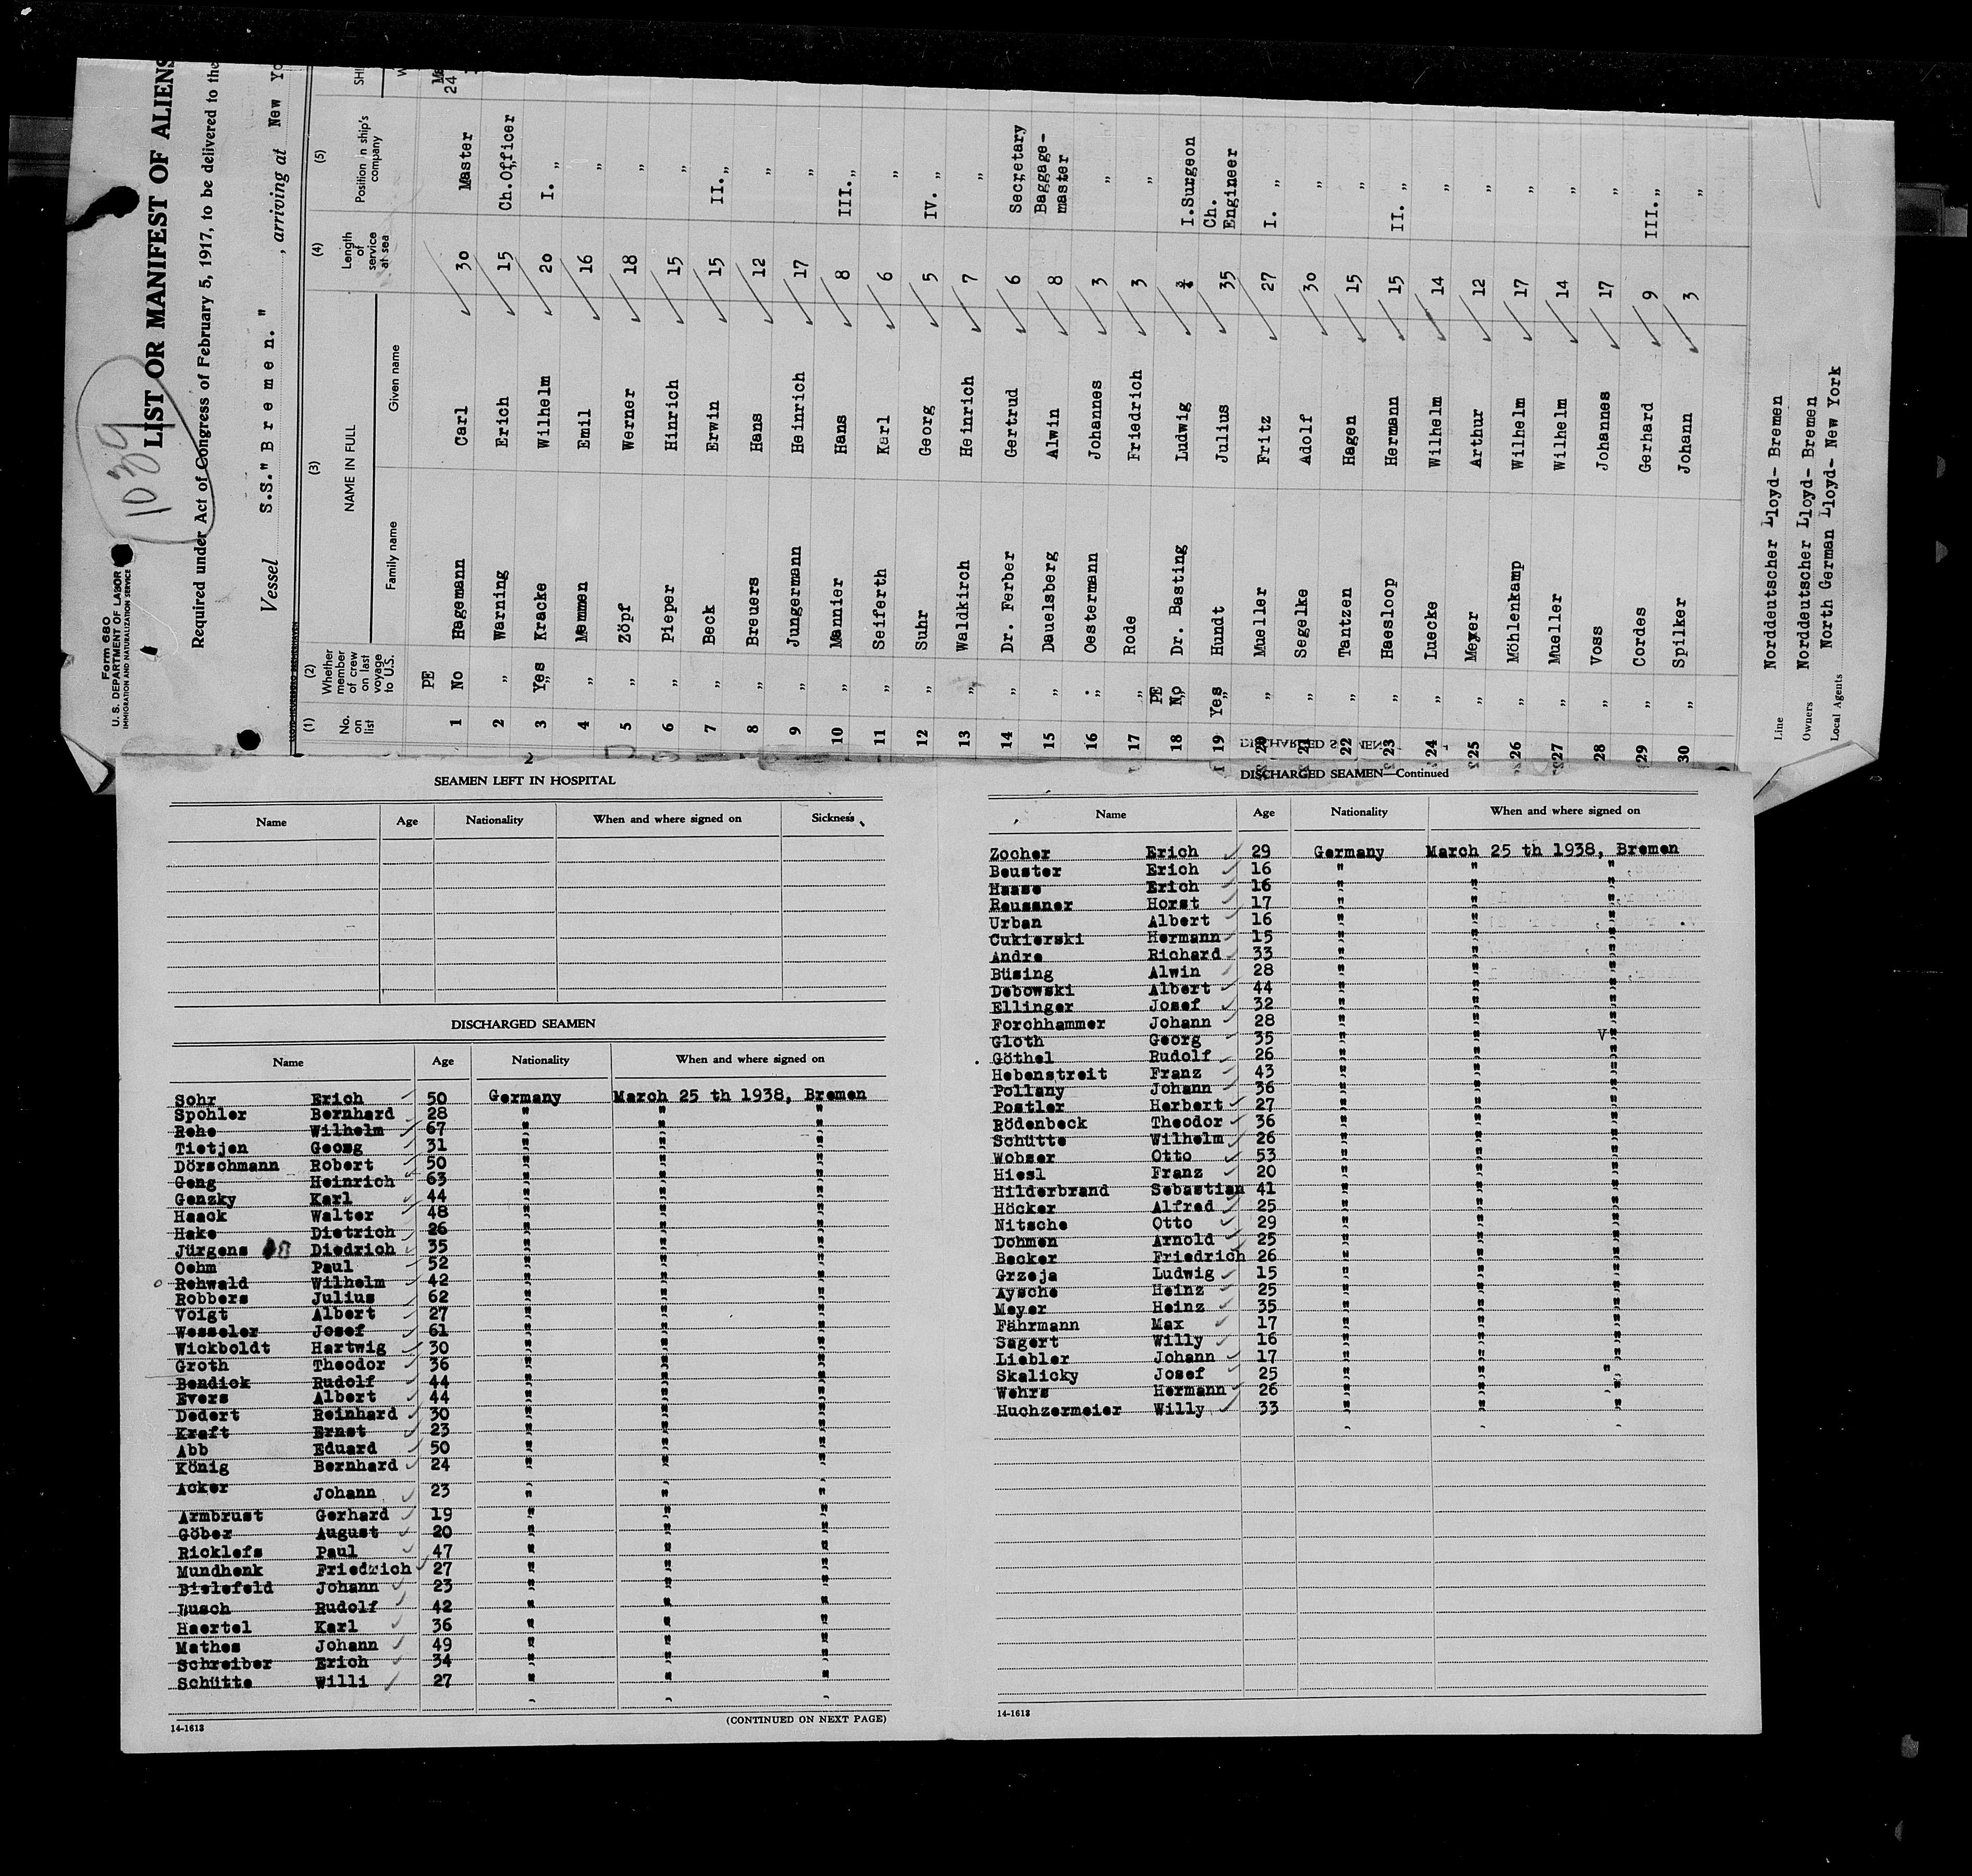 Form 680
U. S. DEPARTMENT OF LABOR
IMMIGRATION AND NATURALIZATION SERVICE
1039
LIST OR MANIFEST OF ALIENS
Required under Act of Congress of February 5, 1917, to be delivered to the
Vessel S.S." B r e m e n. " , arriving at New Yo
(1) (2) (3) (4) (5)
No. on list Whether member of crew on last voyage to U.S. NAME IN FULL Length of service at sea Position in ship's company SHI
Family name Given name
PE
1 No Hagemann Carl 30 Master
2 " Warning Erich 15 Ch.Officer
3 Yes Kracke Wilhelm 20 I. "
4 " Memmen Emil 16 "
5 " Zöpf Werner 18 "
6 " Pieper Hinrich 15 "
7 " Beck Erwin 15 II. "
8 " Breuers Hans 12 "
9 " Jungermann Heinrich 17 "
10 " Mannier Hans 8 III. "
11 " Seiferth Karl 6 "
12 " Suhr Georg 5 IV. "
13 " Waldkirch Heinrich 7 "
14 " Dr. Ferber Gertrud 6 Secretary
15 " Dauelsberg Alwin 8 Baggage-master
16 " Oestermann Johannes 3 "
17 " Rode Friedrich 3 "
PE
18 No Dr. Basting Ludwig I.Surgeon
19 Yes Hundt Julius 35 Ch. Engineer
20 " Mueller Fritz 27 I. "
21 " Segelke Adolf 30 "
22 " Tantzen Hagen 15 "
23 " Haesloop Hermann 15 II. "
24 " Luecke Wilhelm 14 "
25 " Meyer Arthur 12 "
26 " Möhlenkamp Wilhelm 17 "
27 " Mueller Wilhelm 14 "
28 " Voss Johannes 17 "
29 " Cordes Gerhard 9 III. "
30 " Spilker Johann 3 "
Line Norddeutscher Lloyd- Bremen
Owners Norddeutscher Lloyd- Bremen
Local Agents North German Lloyd- New York
SEAMEN LEFT IN HOSPITAL
Name Age Nationality When and where signed on Sickness
DISCHARGED SEAMEN
Name Age Nationality When and where signed on
Sohr Erich 50 Germany March 25 th 1938, Bremen
Spohler Bernhard 28 " " "
Rehe Wilhelm 67 " " "
Tietjen Georg 31 " " "
Dörschmann Robert 50 " " "
Geng Heinrich 63 " " "
Genzky Karl 44 " " "
Haack Walter 48 " " "
Hake Dietrich 26 " " "
Jürgens Diedrich 35 " " "
Oehm Paul 52 " " "
Rehwald Wilhelm 42 " " "
Robbers Julius 62 " " "
Voigt Albert 27 " " "
Wesseler Josef 61 " " "
Wickboldt Hartwig 30 " " "
Groth Theodor 36 " " "
Bendick Rudolf 44 " " "
Evers Albert 44 " " "
Dedert Reinhard 30 " " "
Kraft Ernst 23 " " "
Abb Eduard 50 " " "
König Bernhard 24 " " "
Acker Johann 23 " " "
Armbrust Gerhard 19 " " "
Göber August 20 " " "
Ricklefs Paul 47 " " "
Mundhenk Friedrich 27 " " "
Bielefeld Johann 23 " " "
Busch Rudolf 42 " " "
Haertel Karl 36 " " "
Mathes Johann 49 " " "
Schreiber Erich 34 " " "
Schütte Willi 27 " " "
14-1613 (CONTINUED ON NEXT PAGE)
DISCHARGED SEAMEN—Continued
Name Age Nationality When and where signed on
Zocher Erich 29 Germany March 25 th 1938, Bremen
Beuster Erich 16 " " "
Haase Erich 16 " " "
Reussner Horst 17 " " "
Urban Albert 16 " " "
Cukierski Hermann 15 " " "
Andre Richard 33 " " "
Büsing Alwin 28 " " "
Debowski Albert 44 " " "
Ellinger Josef 32 " " "
Forchhammer Johann 28 " " "
Gloth Georg 35 " " "
Göthel Rudolf 26 " " "
Hebenstreit Franz 43 " " "
Pollany Johann 36 " " "
Postler Herbert 27 " " "
Rödenbeck Theodor 36 " " "
Schütte Wilhelm 26 " " "
Wobser Otto 53 " " "
Hiesl Franz 20 " " "
Hilderbrand Sebastian 41 " " "
Höcker Alfred 25 " " "
Nitsche Otto 29 " " "
Dohmen Arnold 25 " " "
Becker Friedrich 26 " " "
Grzeja Ludwig 15 " " "
Aysche Heinz 25 " " "
Meyer Heinz 35 " " "
Fährmann Max 17 " " "
Sagert Willy 16 " " "
Liebler Johann 17 " " "
Skalicky Josef 25 " " "
Wehrs Hermann 26 " " "
Huchzermeier Willy 33 " " "
14-1613